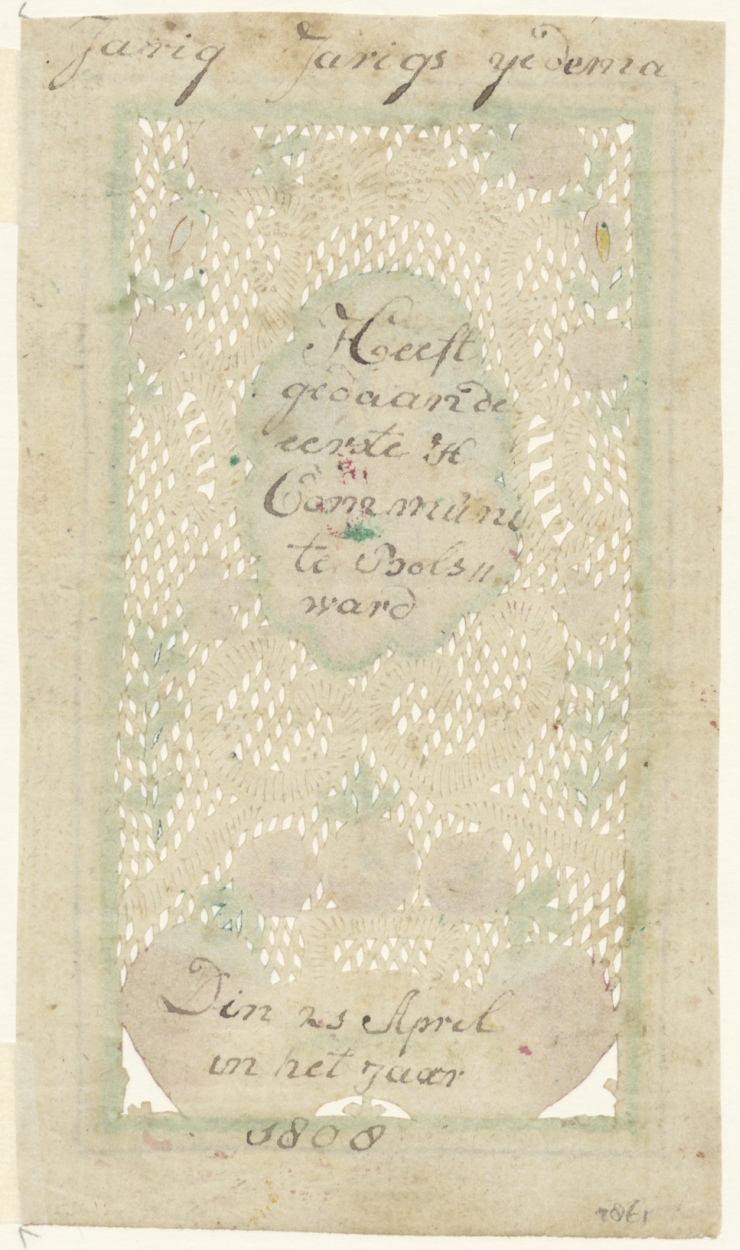 Jarig Jarigs ydema
Heeft
gedaan de
eerste H
Communi
te Bols〃
ward
Den 23 April
in het Jaar
1808